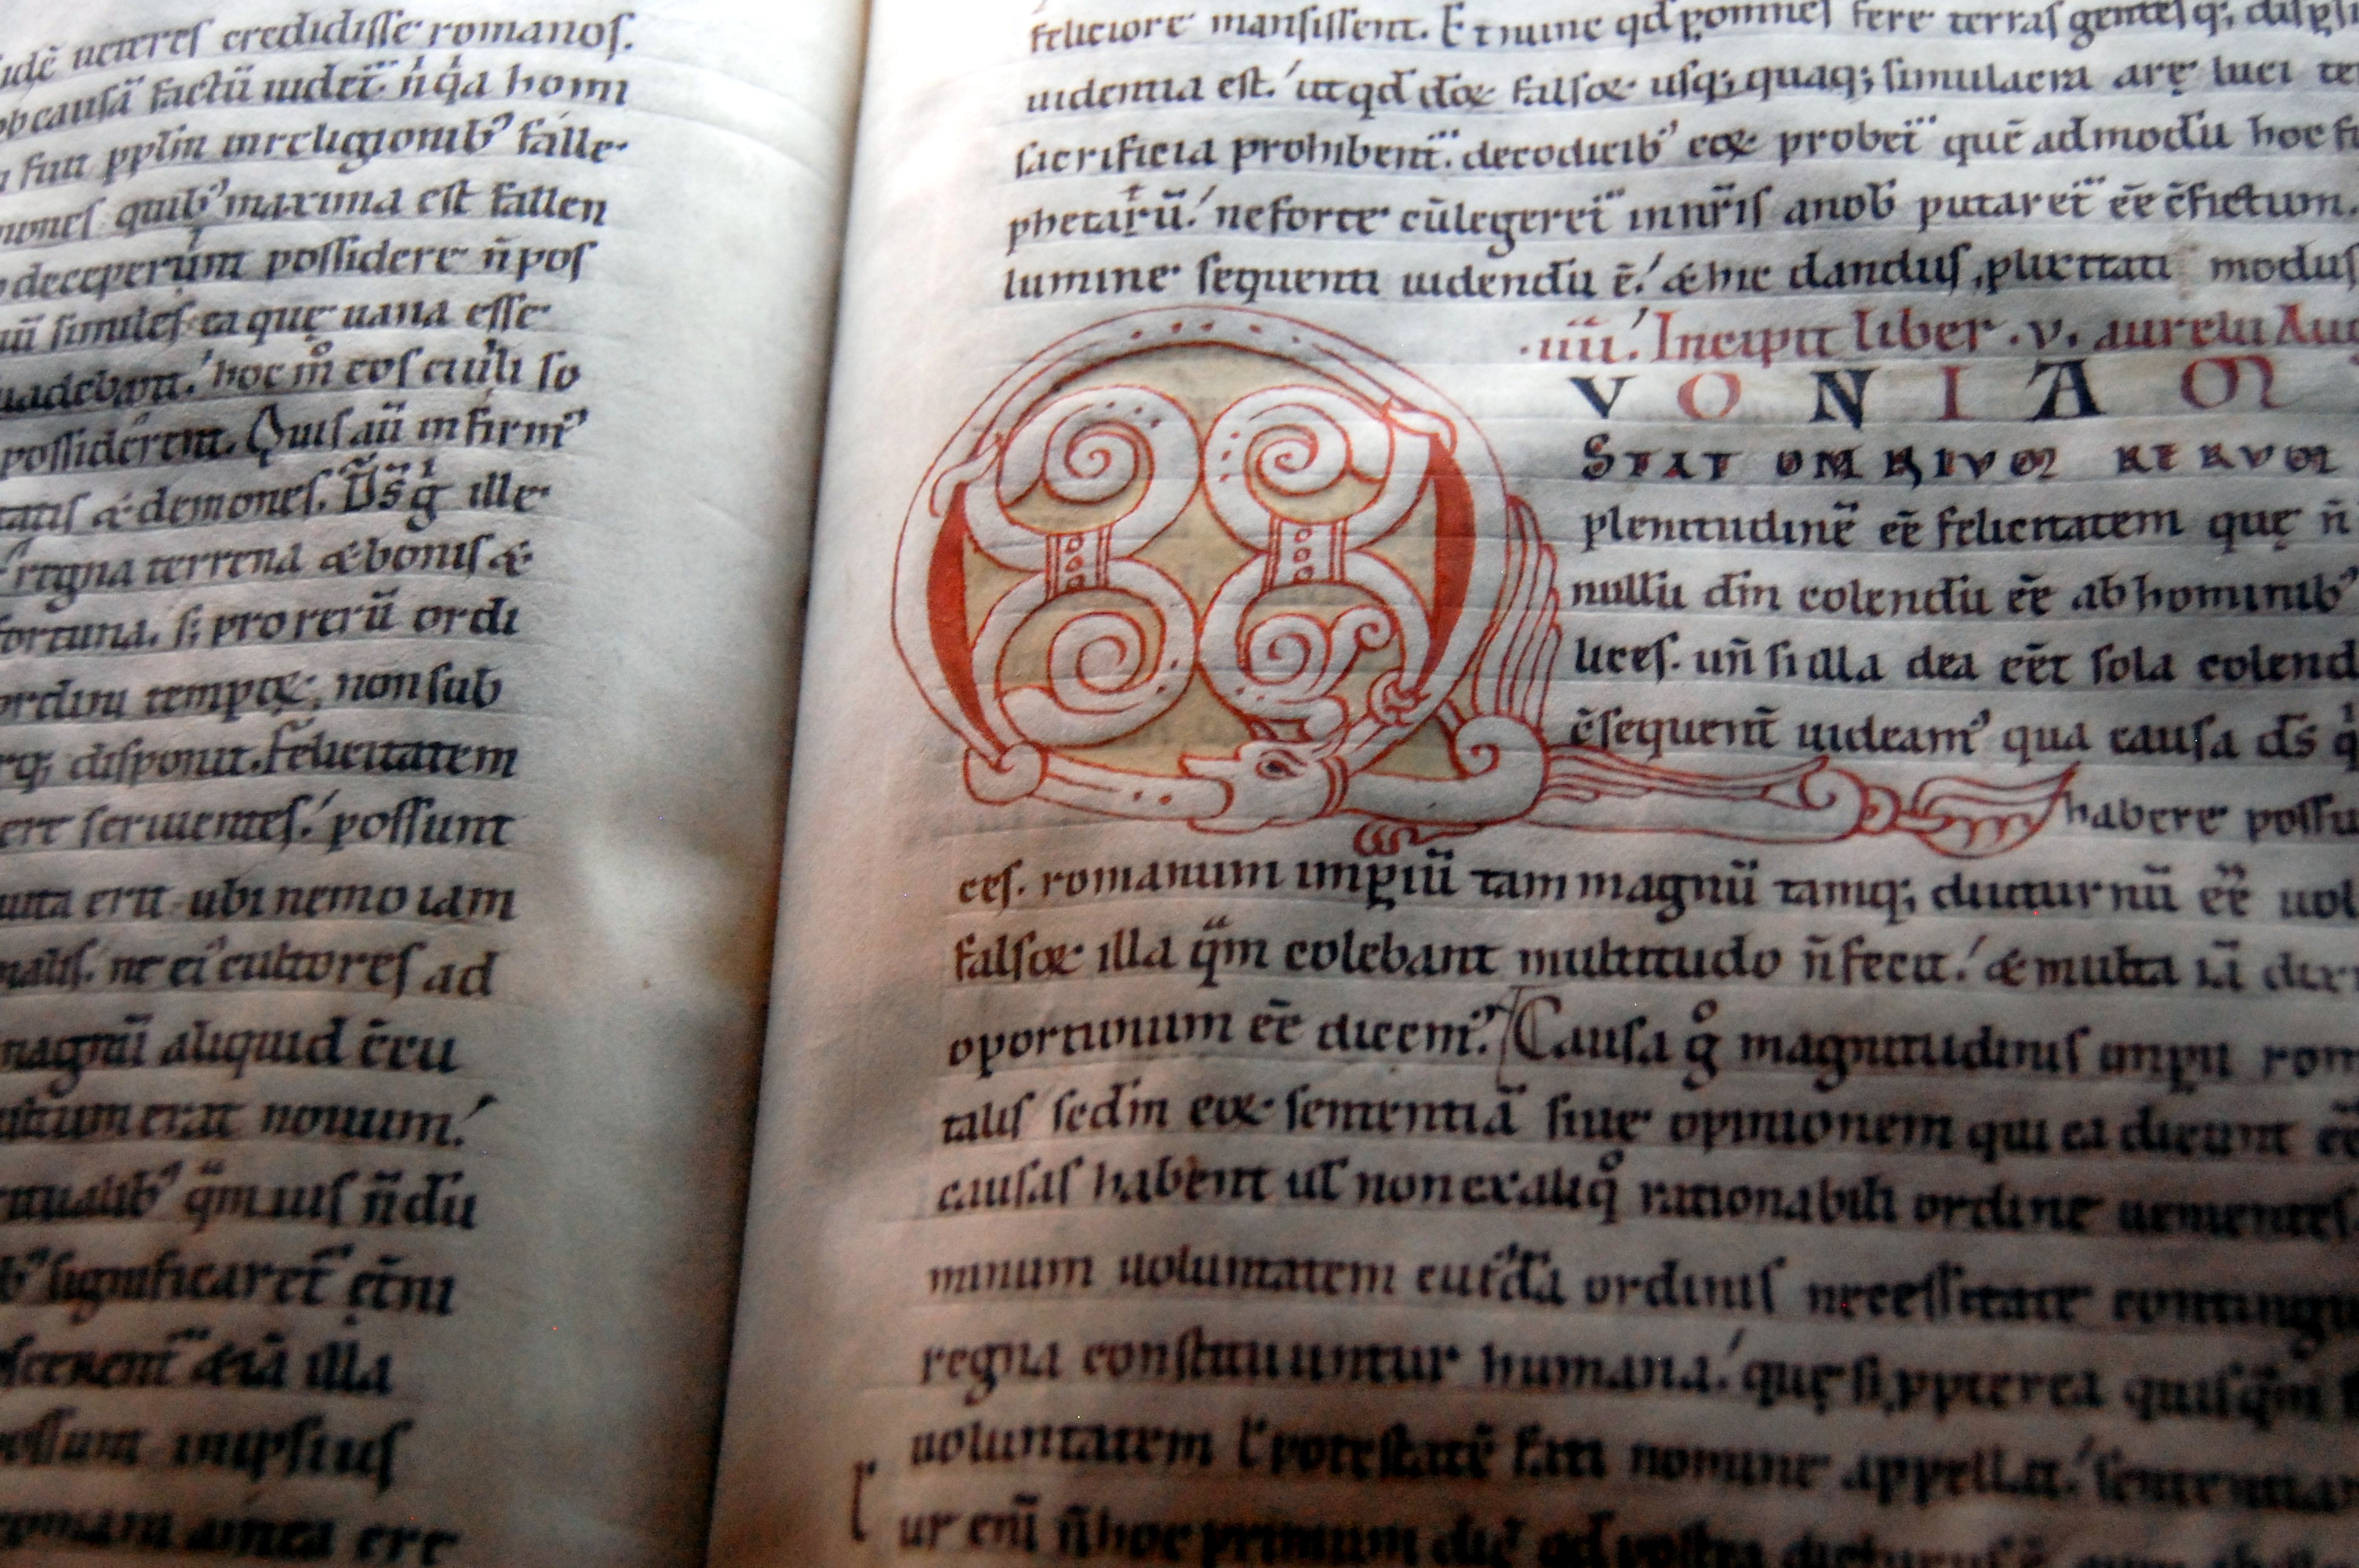 ueteres credidisse romanos.
ob causā factū uidet̄ n̄ qa homi
pplm in religionib᾽ falle
quib᾽ maxima est fallen
deceperunt possidere n̄ pos
similes ea quę uana esse
hoc m̊ eos ciuili so
possiderent. Quis aū infirm᾽
& demones. D̄s g̊ ille
regna terrena & bonis &
fortuna. s; pro rerū ordi
ordini tempoꝝ; non sub
disponit. Felicitatem
seruientes. possunt
uita erit ubi nemo iam
malis. ne ei᾽ cultores ad
magnū aliquid ēeu
erat nouum.
q̄m iuis n̄dū
significaret̄ ęt̄ni
&iā illa
possunt in ipsius
ere
feliciore mansissent. Et nunc qd ꝑ omnes fere terras gentesq;
uidentia est. ut qd doꝝ falsoꝝ usq; quaq; simulacra arę luci te
sacrificia prohibent̄. de codicib᾽ eoꝝ probet̄ quē admodū hoc fu
phetatū. ne forte cū legeret̄ in nr̄is a nob̄ putaret̄ ēe c̄fictum.
lumine sequenti uidendū ē. & hic dandus ꝓlixitati modus
.iiii. Incipit liber .v. aurelii Aug
QVONIAM
STAT OMNIVM RERVM
plenitudinē ēe felicitatem quę n̄
nullū dm̄ colendū ēe ab hominib᾽
lices. un̄ si illa dea eēt sola colend
c̄sequent̄ uideam᾽ qua causa d̄s q
habere possu
ces. romanum impiū tam magnū tamq; diuturnū ēe uol
falsoꝝ illa q̄m colebant multitudo n̄ fecit. & multa iā dix
oportunum ēe dicem᾽. Causa g̊ magnitudinis impii rom
talis sedm̄ eoꝝ sententiā siue opinionem qui ea dicunt ēe
causas habent ul̄ non ex aliq̊ rationabili ordine uenientes
minum uoluntatem cui᾽dā ordinis necessitate conting
regna constituuntur humana. quę si ꝓpterea quisq̄m
uoluntatem l̄ potestatē fati nomine appellat. sententiam
ur eni̅ n̄ hoc primum